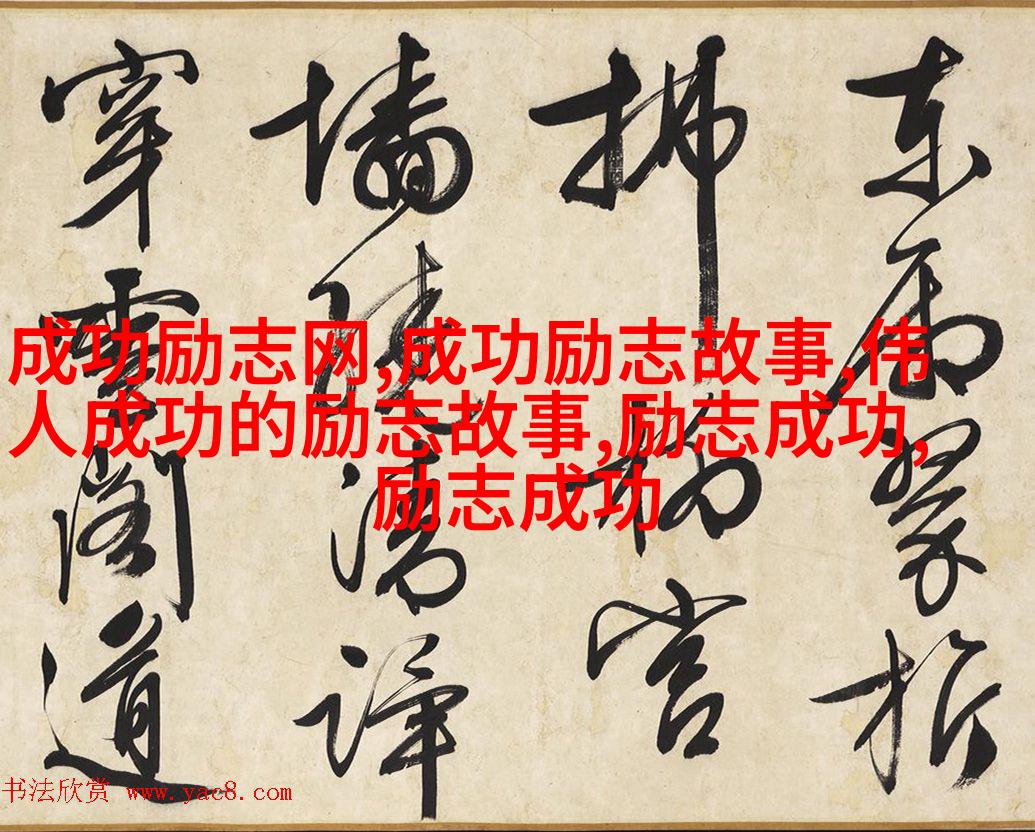 成功励志网,成功励志故事,伟
人成功的励志故事,励志成功,
励志成功
東翠
拂
墙
穿雲閣道
书法欣赏 www.yac8.com